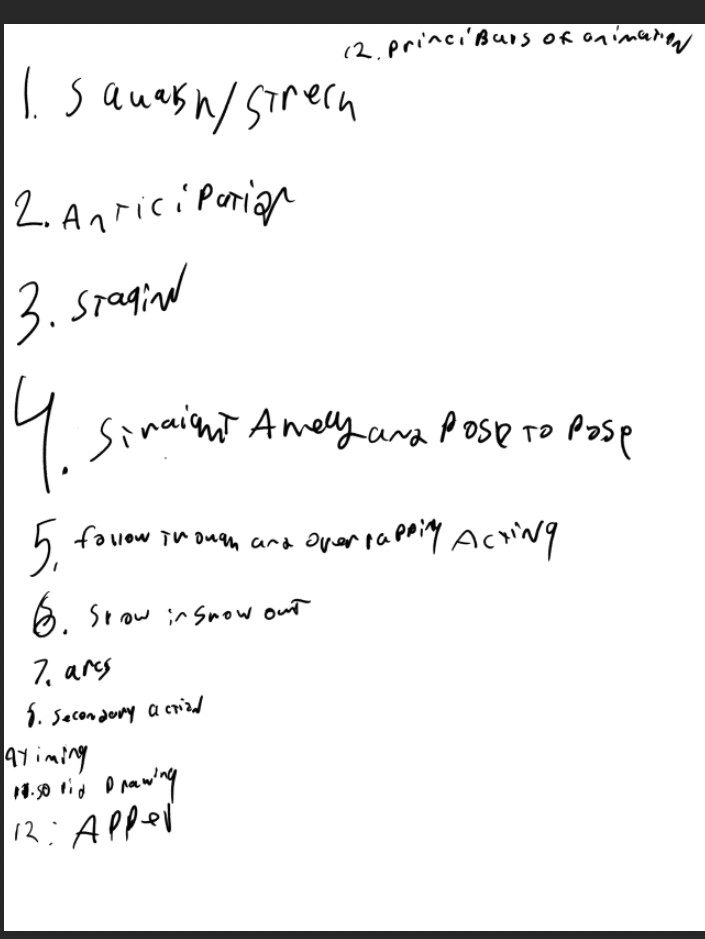 12. PrinciBals of animation
1. Squash/Strech
2. Anticipation
3. Staging
4. Straight Ahead and Pose to Pose
5. follow through and overlapping Acting
6. Slow in Slow out
7. arcs
8. Secondary action
9 Timing
11. Solid Drawing
12: Appel